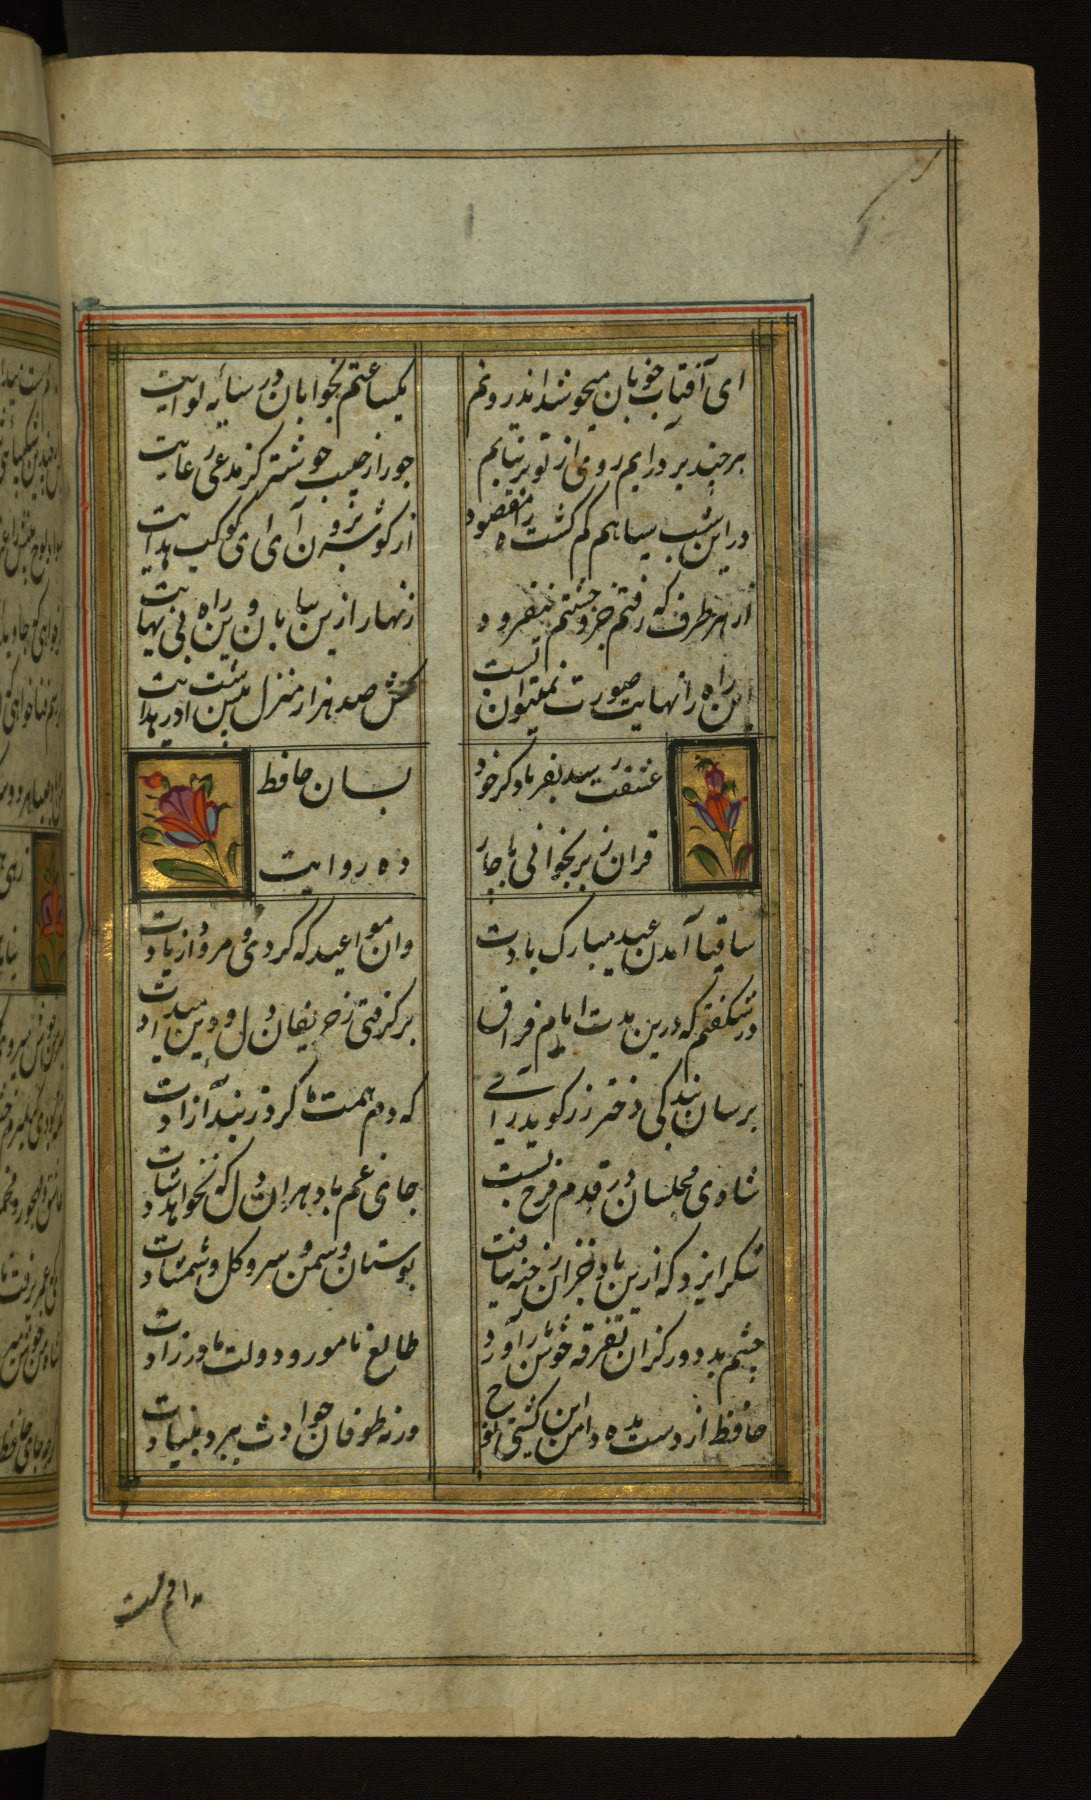 ای آفتاب خوبان میجوشد اندرونم
یکساعتم بخوابان در سایه لوایت
هرچند بر درآیم روی از تو برنتابم
جور از حبیب خوشتر کز مدعی رعایت
در این شب سیاهم کم کشت راه مقصود
از کوشه برون آی ای کوکب هدایت
از هر طرف که رفتم جز وحشتم نیفزود
زنهار ازین بیابان وین راه بی نهایت
این راه را نهایت صورت نمیتوان بست
کش صد هزار منزل بیش است در بدایت
عشقت رسد بفریاد کر خود
بسان حافظ
قران ز بر بخوانی با چار
ده روایت
ساقیا آمدن عید مبارک بادت
وان مواعید که کردی و مرواد از یادت
در شکفتم که درین مدت ایام فراق
برکرفتی ز حریفان دل و دل میدادت
برسان بندکی دختر رز کو بدر ای
که دم همت ما کرد ز بند آزادت
شادی مجلسیان در قدم فرخ تست
جای غم باد هر ان دل که نخواهد شادت
شکر ایزد که ازین باد خزان رخنه نیافت
بوستان و سمن و سرو کل و شمشادت
چشم بد دور کزان تفرقه خوش باز آورد
طالع نامور و دولت مادرزادت
حافظ از دست مده دامن این کشتی نوح
ورنه طوفان حوادث ببرد بنیادت